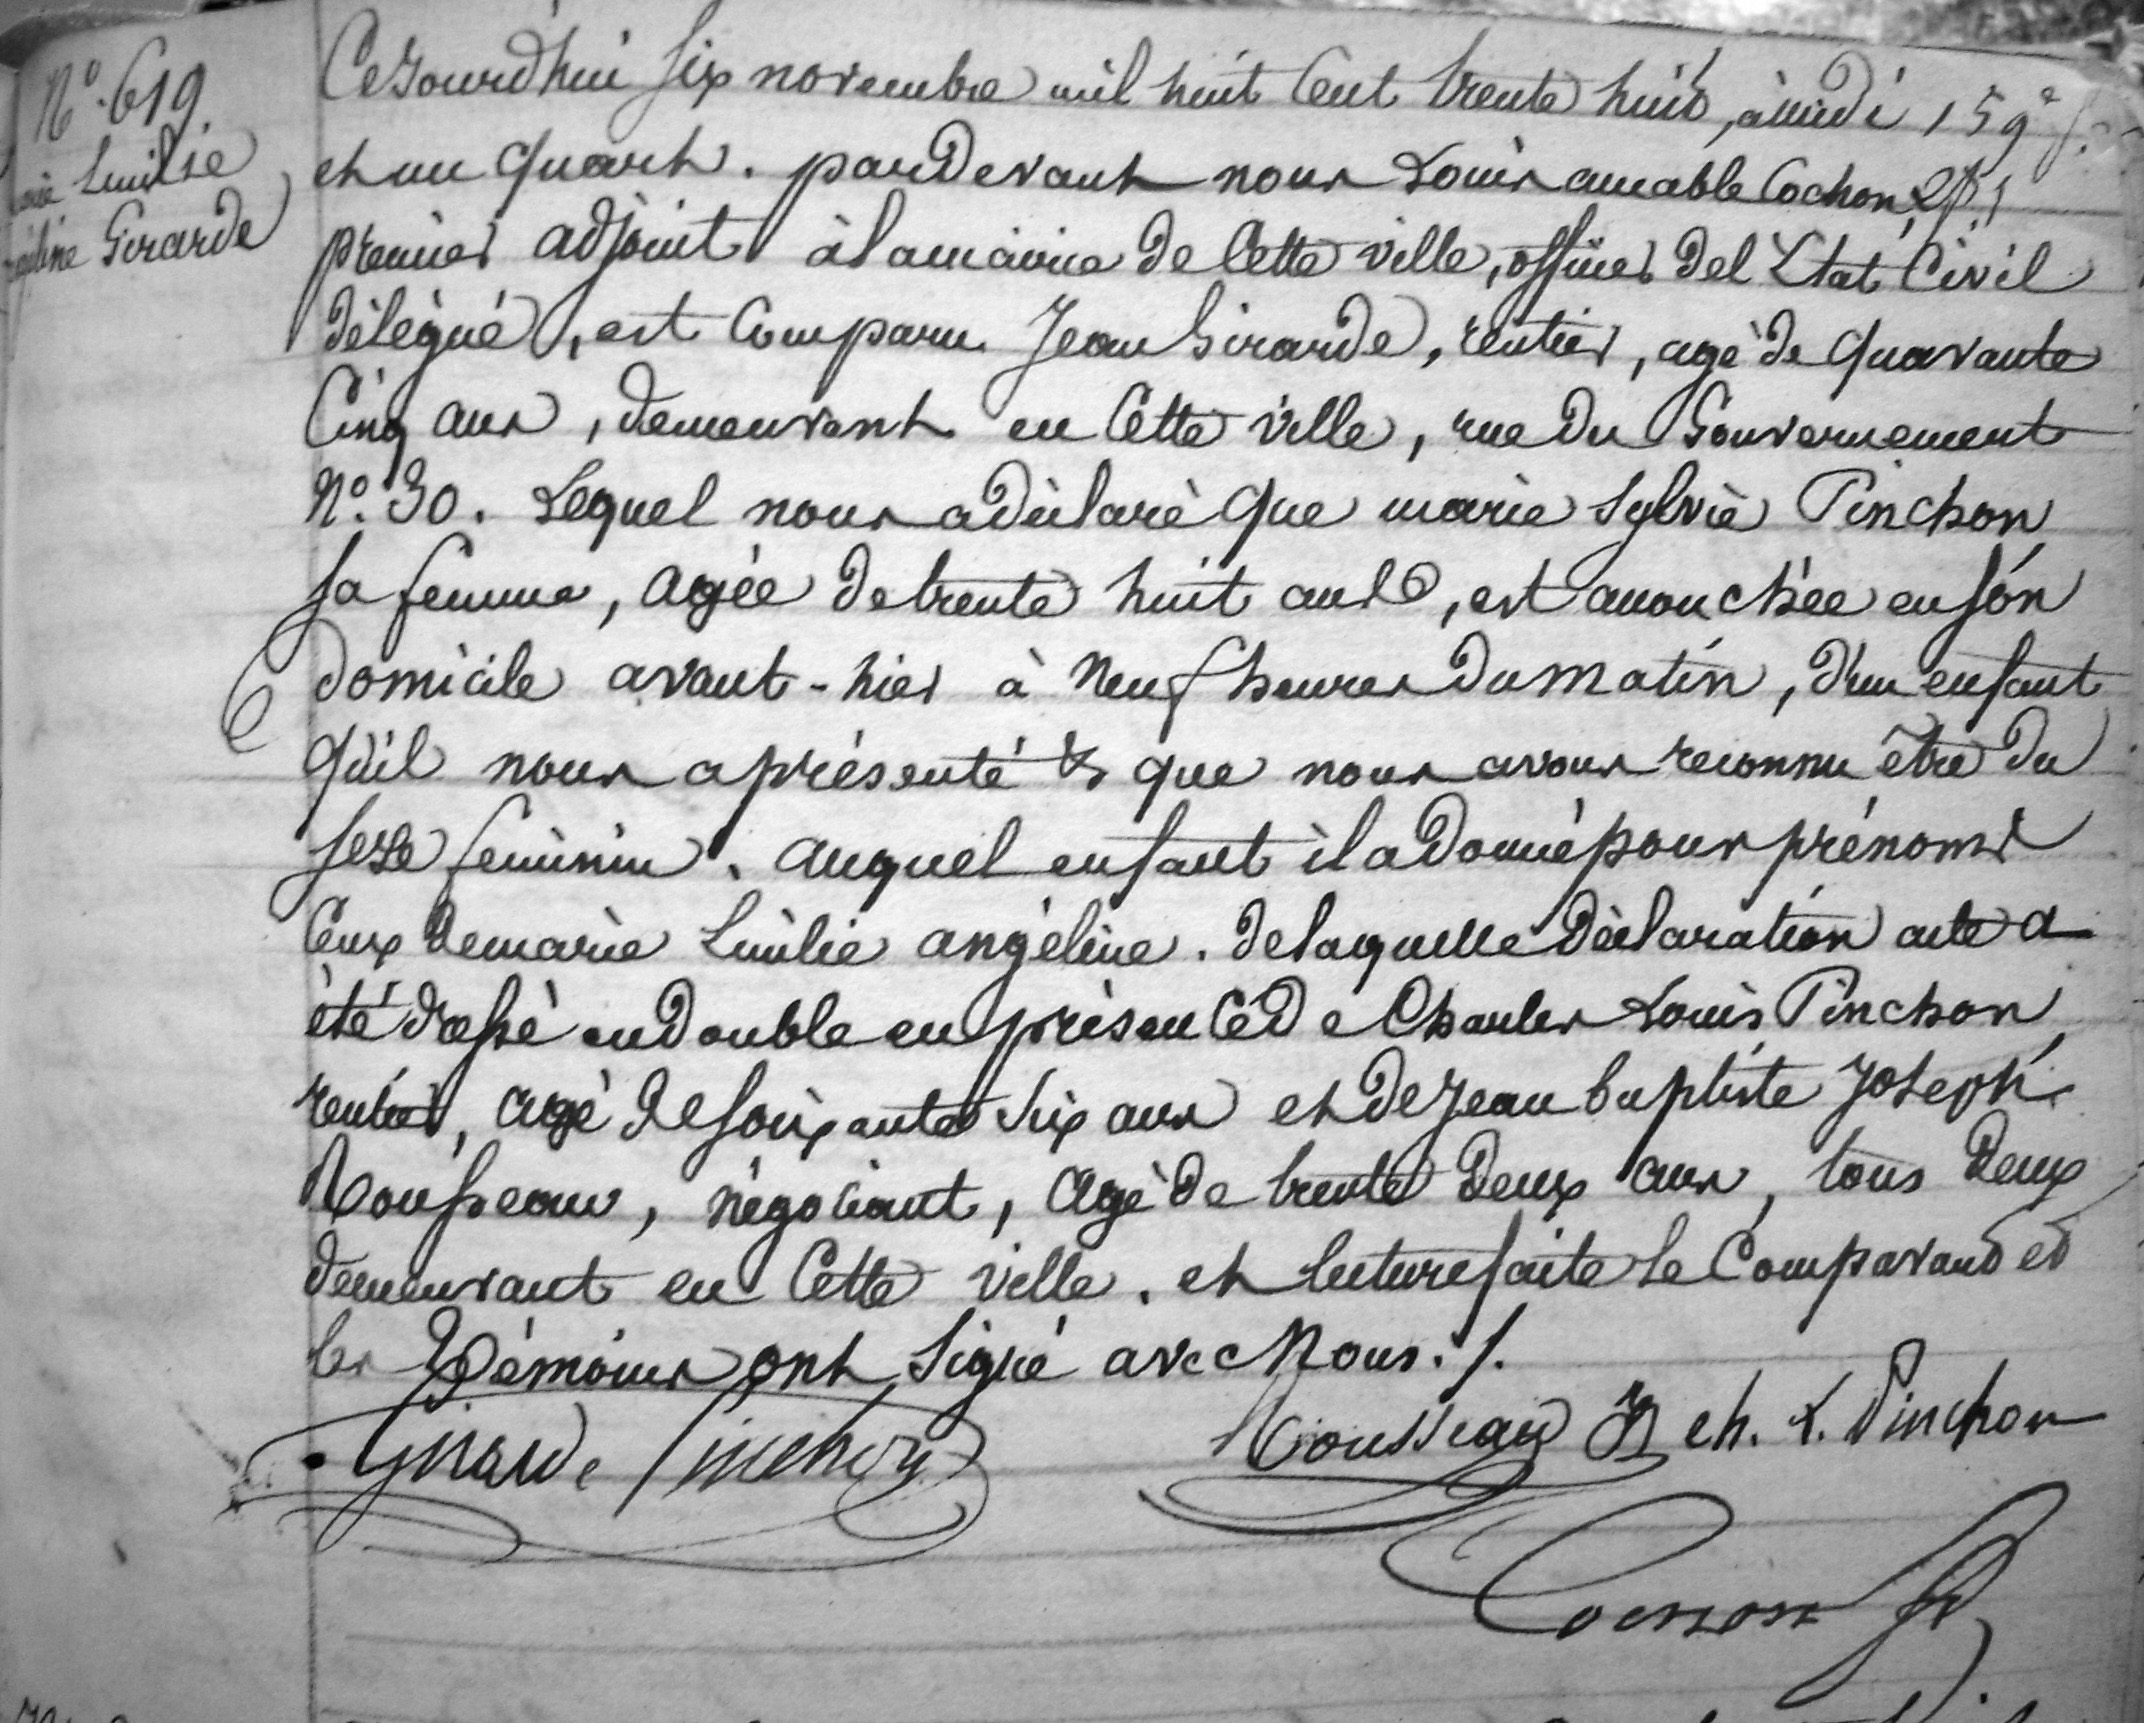 N.º 619.
Marie Emilie
Angéline Girarde
Cejourd'hui six novembre mil huit Cent trente huit, à midi 159e f.
et un quart. pardevant nous Louis amable Cochon,
premier adjoint à la mairie de Cette ville, officier de l'Etat Civil
délégué, est Comparu Jean Girarde, rentier, agé de quarante
Cinq ans, demeurant en Cette ville, rue du Gouvernement
N.º 30. Lequel nous a déclaré que marie Sylvie Pinchon
sa femme, agée de trente huit ans, est accouchée en son
domicile avant-hier à Neuf heures du matin, d'un enfant
qu'il nous a présenté & que nous avons reconnu être du
sexe feminin. auquel enfant il a donné pour prénoms
Ceux de marie Emilie angéline. de laquelle déclaration acte a
été dressé en double en présence de Charles Louis Pinchon,
rentier, agé de soixante six ans et de Jean baptiste Joseph
Rousseau, négociant, agé de trente deux ans, tous deux
demeurant en Cette ville. et lecture faite le Comparant et
les Témoins ont Signé avec Nous ./.
Girarde Pinchon Rousseau JB ch. L. Pinchon
Cochon